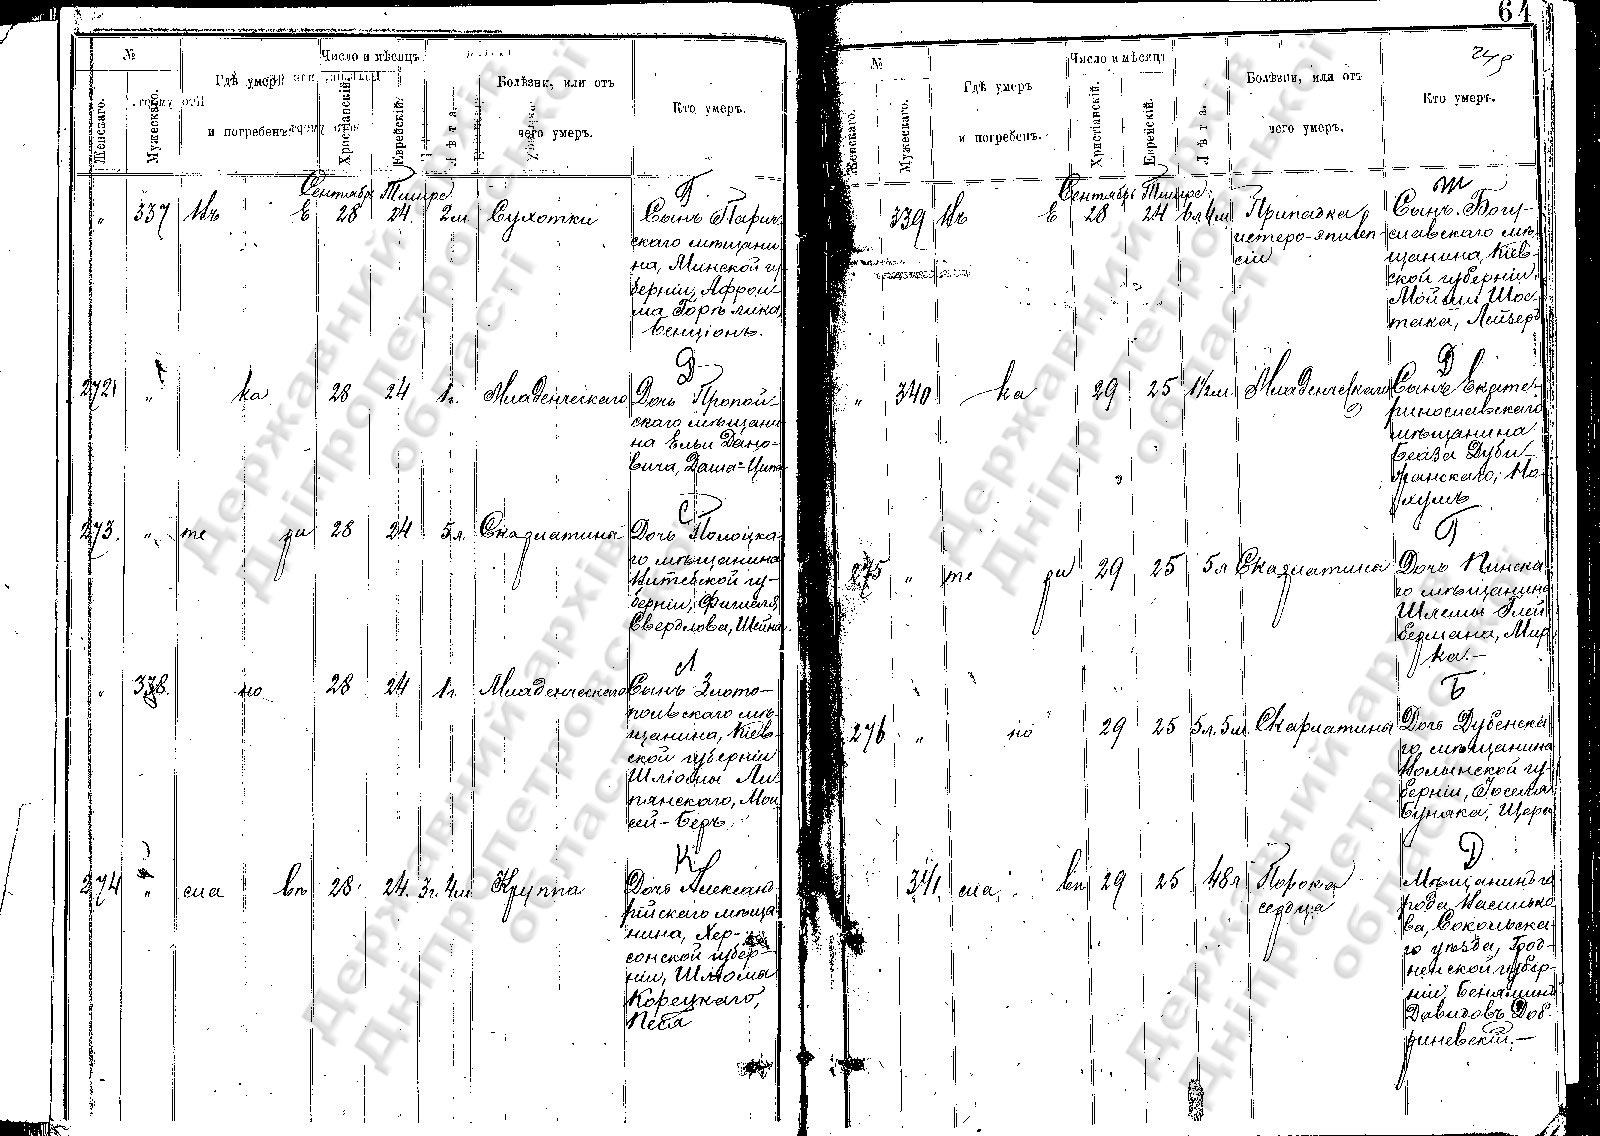 64
249
№
Женскаго.
Мужескаго.
Гдѣ умеръ
и погребенъ.
Число и мѣсяцъ
Христіанскій.
Еврейскій.
Лѣта.
Болѣзни, или отъ
чего умеръ.
Кто умеръ.
Сентябрь Тишре
„ 337 Въ Е 28 24 2 м Сухотки
Г
Сынъ Парич
скаго мѣщани
на, Минской гу
берніи, Афрои
ма Горѣлика,
Бенціонъ.
272 „ ка 28 24 1 г. Младенческаго
Д
Дочь Пропой
скаго мѣщани
на Ельи Дано-
вича, Даша-Ципа
273. „ те ри 28 24 5 л. Скарлатина
С
Дочь Полоцка
го мѣщанина
Витебской гу-
берніи, Фишеля
Свердлова, Шейна.
„ 338. но 28 24 1 г. Младенческаго
Л
Сынъ Злото-
польскаго мѣ-
щанина, Кіев-
ской губерніи
Шліомы Ли
пянскаго, Мои
сей-Беръ.
274 „ сла вѣ 28 24. 3 г. 4 м Круппа
К
Дочь Александ
рійскаго мѣща
нина, Хер-
сонской губер-
ніи, Шлюма
Корецкаго,
Песя
№
Женскаго.
Мужескаго.
Гдѣ умеръ
и погребенъ.
Число и мѣсяцъ
Христіанскій.
Еврейскій.
Лѣта.
Болѣзни, или отъ
чего умеръ.
Кто умеръ.
Сентябрь Тишре
339 Въ Е 28 24 6 л 4 м Припадка
истеро-эпилеп-
сіи
Ш
Сынъ Богу-
славскаго мѣ-
щанина, Кіев-
ской губерніи,
Мойши Шос-
така, Лейзеръ
„ 340 ка 29 25 1½ м Младенческаго
Д
Сынъ Екате-
ринославскаго
мѣщанина
Дуби-
рянскаго, На-
хумъ
275 „ те ри 29 25 5 л Скарлатина
Г
Дочь Пинска
го мѣщанина
Шлемы Глей
бермана, Мир
ка.—
276 „ но 29 25 5 л. 5 м Скарлатина
Б
Дочь Дубенска
го, мѣщанина
Волынской гу-
берніи, Іоселя
Буняка, Щера
341 сла, вѣ 29 25 48 л Порока
сердца
Д
Мѣщанинъ го
рода Василько
ва, Сокольска-
го уѣзда, Грод-
ненской губер-
ніи Беняминъ
Давидовъ Доб
риневскій.—
Державний архів
Дніпропетровської
області
Державний архів
Дніпропетровської
області
Державний архів
Дніпропетровської
області
Державний архів
Дніпропетровської
області